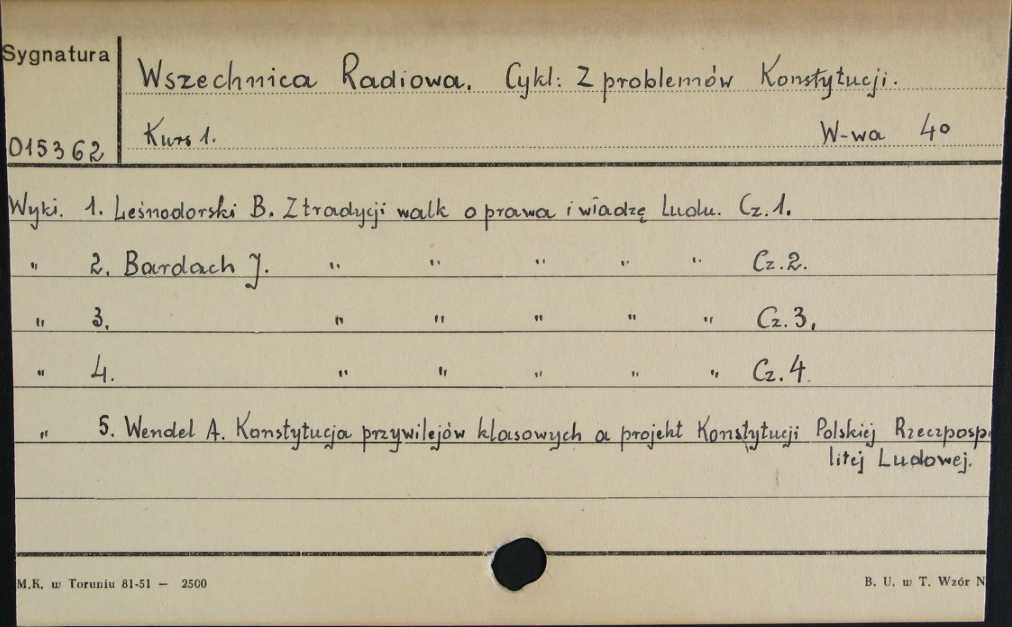 Sygnatura
Wszechnica Radiowa. Cykl: Z problemów Konstytucji.
015362
Kurs 1. W-wa 4o
Wykł. 1. Leśnodorski B. Z tradycji walk o prawa i władzę Ludu. Cz.1.
" 2. Bardach J. " " " " " Cz.2.
" 3. " " " " " Cz.3.
" 4. " " " " " Cz.4.
" 5. Wendel A. Konstytucja przywilejów klasowych a projekt Konstytucji Polskiej Rzeczpospo
litej Ludowej.
M.K. w Toruniu 81-51 — 2500
B. U. w T. Wzór N